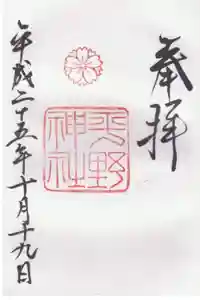 奉拝
平野
神社
平成二十五年十月十九日